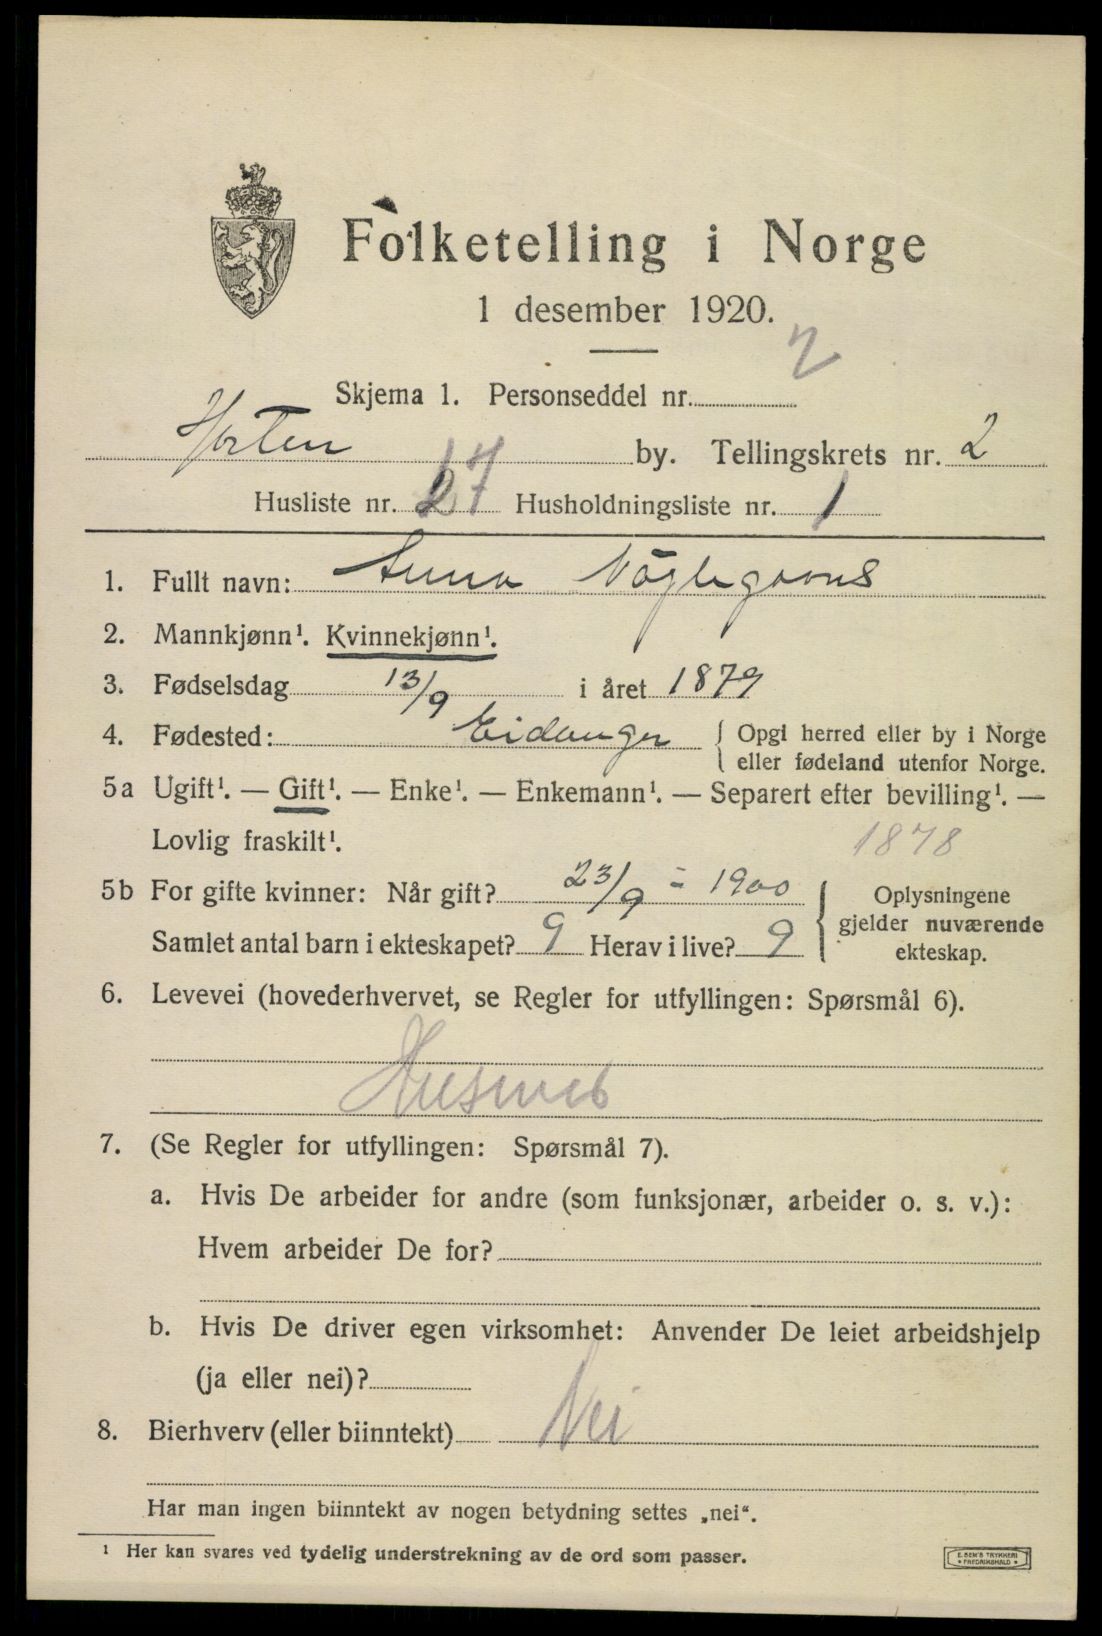 Folketelling i Norge
1 desember 1920.
Skjema 1. Personseddel nr. 2
Horten by. Tellingskrets nr. 2
Husliste nr. 17 Husholdningsliste nr. 1
1. Fullt navn: Anna
2. Mannkjønn¹. Kvinnekjønn¹.
3. Fødselsdag 13/9 i året 1879
4. Fødested: Eidanger { Opgi herred eller by i Norge
eller fødeland utenfor Norge.
5a Ugift¹. — Gift¹. — Enke¹. — Enkemann¹. — Separert efter bevilling¹. —
Lovlig fraskilt¹. 1878
5b For gifte kvinner: Når gift? 23/9 - 1900 { Oplysningene
gjelder nuværende
Samlet antal barn i ekteskapet? 9 Herav i live? 9
ekteskap.
6. Levevei (hovederhvervet, se Regler for utfyllingen: Spørsmål 6).
Husmor
7. (Se Regler for utfyllingen: Spørsmål 7).
a. Hvis De arbeider for andre (som funksjonær, arbeider o. s. v.):
Hvem arbeider De for?
b. Hvis De driver egen virksomhet: Anvender De leiet arbeidshjelp
(ja eller nei)?
8. Bierhverv (eller biinntekt) Nei
Har man ingen biinntekt av nogen betydning settes „nei“.
¹ Her kan svares ved tydelig understrekning av de ord som passer.
E. SEM'S TRYKKERI
FREDRIKSHALD